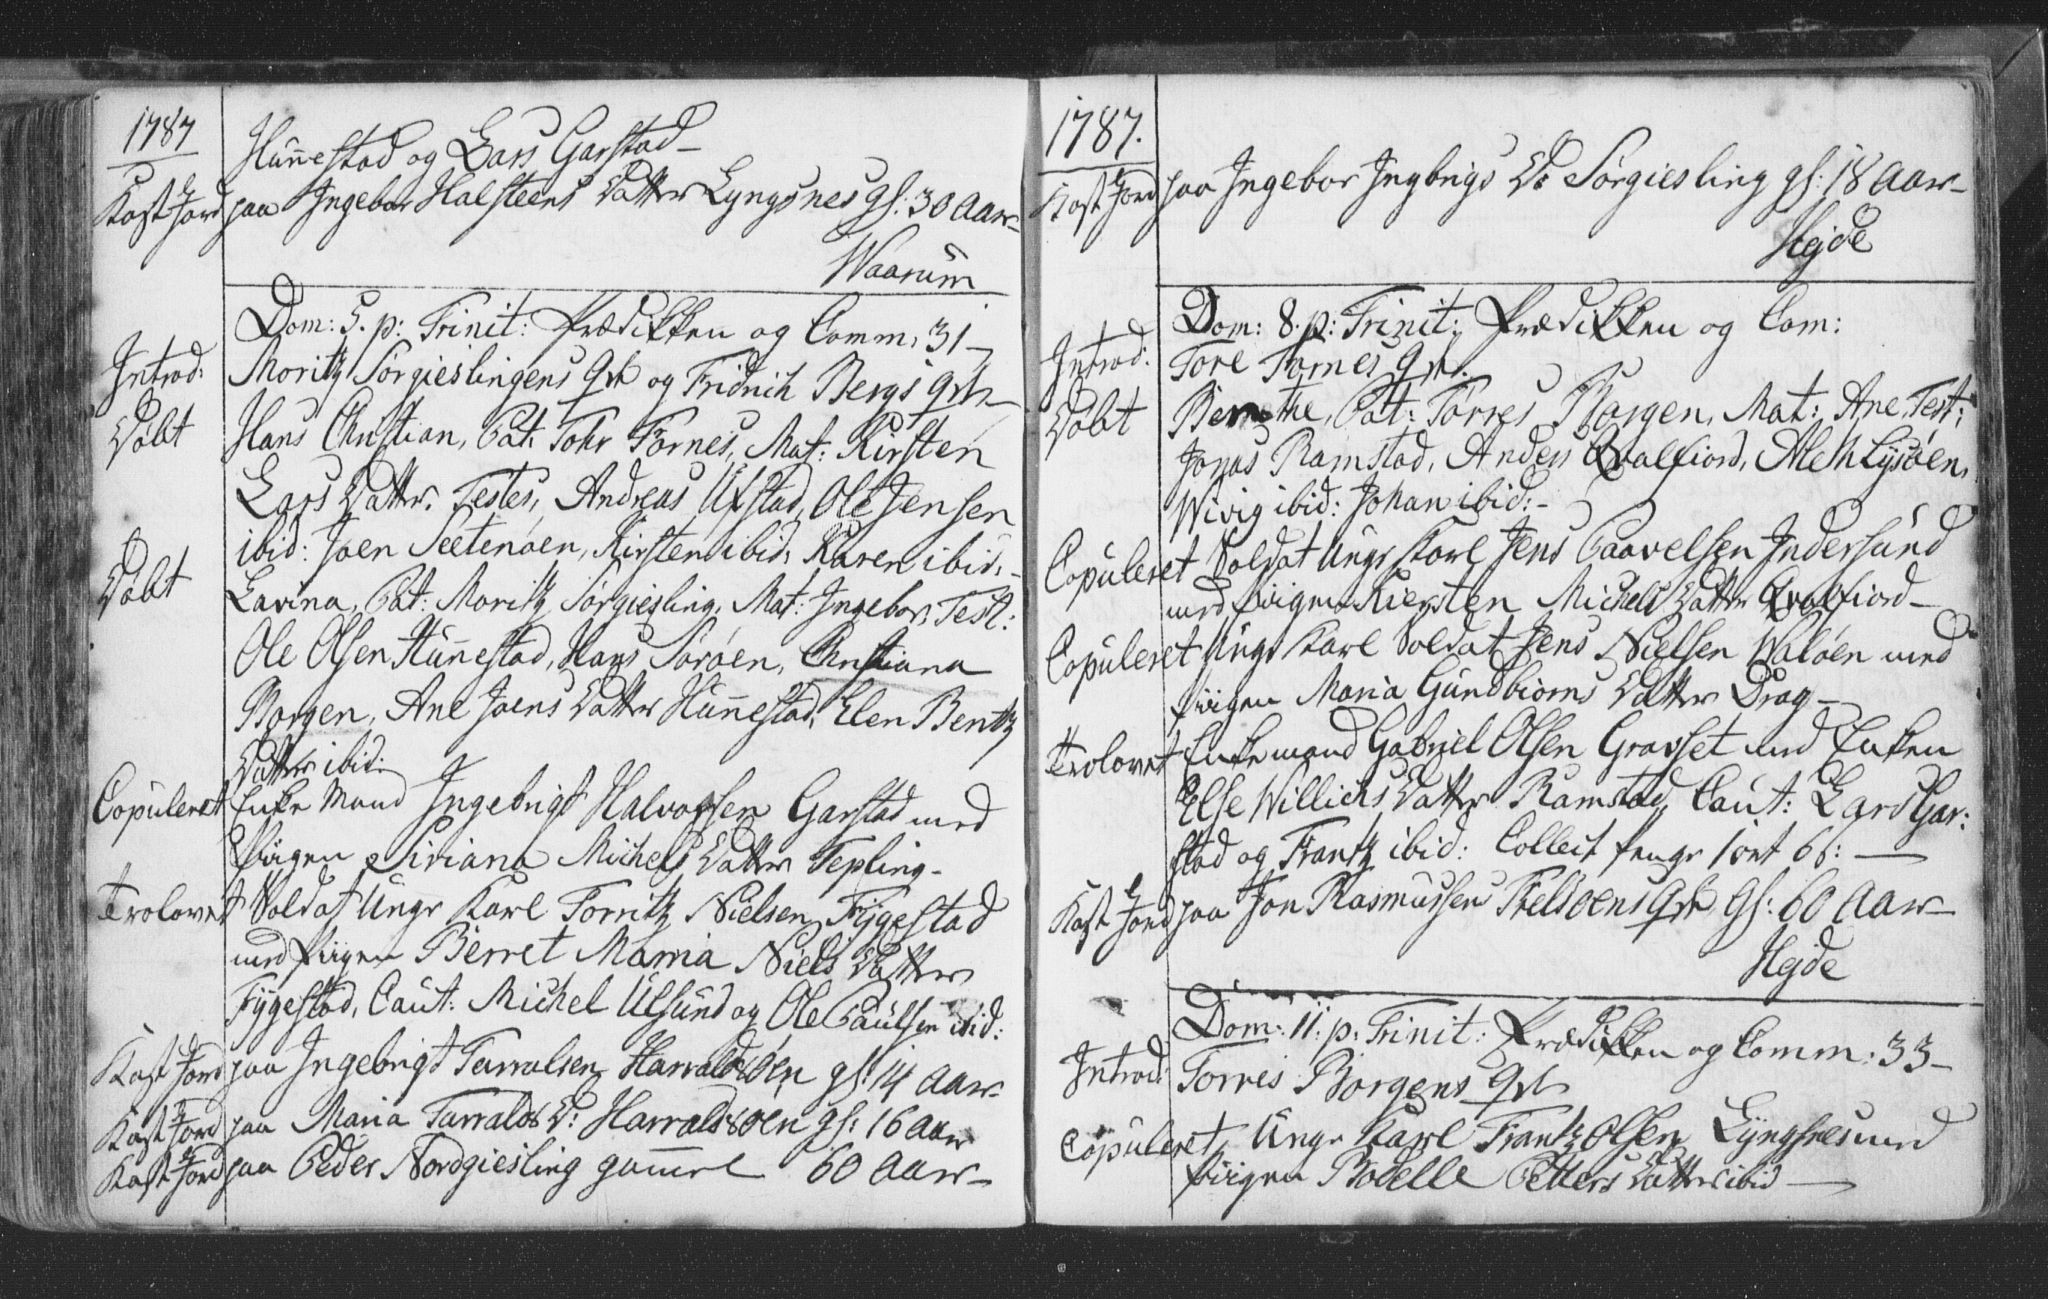 1787
Hunnestad og Lars Garstad
Kast Jord paa Ingebor Halsteens Datter Lyngsnes gl: 30 Aar
Waarum
Dom: 5. p: Trinit: Prædikken og Comm: 31
Introd: Moritz Sørgieslingens Qvk og Fridrich Bergs Qvk
Døbt Hans Christian, Pat: Tohr Fornes, Mat: Kirsten
Lars Datter. Testes, Andreas Ufstad, Ole Jensen
ibid: Joen Seetenøen, Kirsten ibid: Karen ibid:
Døbt Lavina, Pat: Moritz Sørgiesling, Mat: Ingebor, Test:
Ole Olsen Hunnestad, Hans Sørøen, Christiana
Borgen, Ane Joens Datter Hunnestad, Elen Bentz
Datter ibid:
Copuleret Enke Mand Ingebrigt Halvorsen Garstad med
Pigen Siriana Michels Datter Tepling
Trolovet Soldat Unge Karl Torritz Nielsen Fyggestad
med Pigen Berret Maria Niels Datter
Fyggestad, Caut: Michel Ulsund og Ole Paulsen ibid:
Kast Jord paa Ingebrigt Tarralsen Harraldsøen gl: 14 Aar
Kast Jord paa Maria Tarralds D: Harraldsøen gl: 16 Aar
Kast Jord paa Peder Nordgiesling gammel 60 Aar
1787.
Kast Jord paa Ingebor Ingbrigs Dr Sørgiesling gl: 18 Aar
Hejde
Dom: 8. p: Trinit: Prædikken og Com:
Introd: Tore Fornes Qvk.
Døbt Berethe, Pat: Torres Borgen, Mat: Ane, Test:
Jonas Ramstad, Anders Qvalfiord, Aleth Lysøen,
Wivig ibid: Johan ibid:
Copuleret Soldat Unge Karl Jens Paavelsen Indersund
med Pigen Kiersten Michels Datter Qvalfiord
Copuleret Unge Karl Soldat Jens Nielsen Waløen med
Pigen Maria Gundbiorns Datter Drag
Trolovet Enkemand Gabriel Olsen Gravset med Enken
Else Willichs Datter Ramstad, Caut: Lars Gar:
stad og Frantz ibid: Collect penge 1 ort 6 s:
Kast Jord paa Jon Rasmussen Trelsøens Qvk gl: 60 Aar
Hejde
Dom: 11: p: Trinit: Prædikken og Comm: 33
Introd: Torres Borgens Qvk
Copuleret, Unge Karl Frantz Olsen Lyngsnes med
Pigen Bodelle Petters Datter ibid